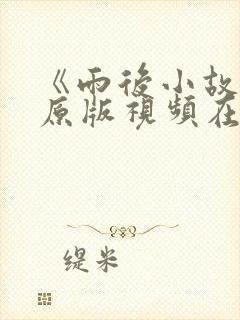 《雨後小故
原版視頻在
缇米